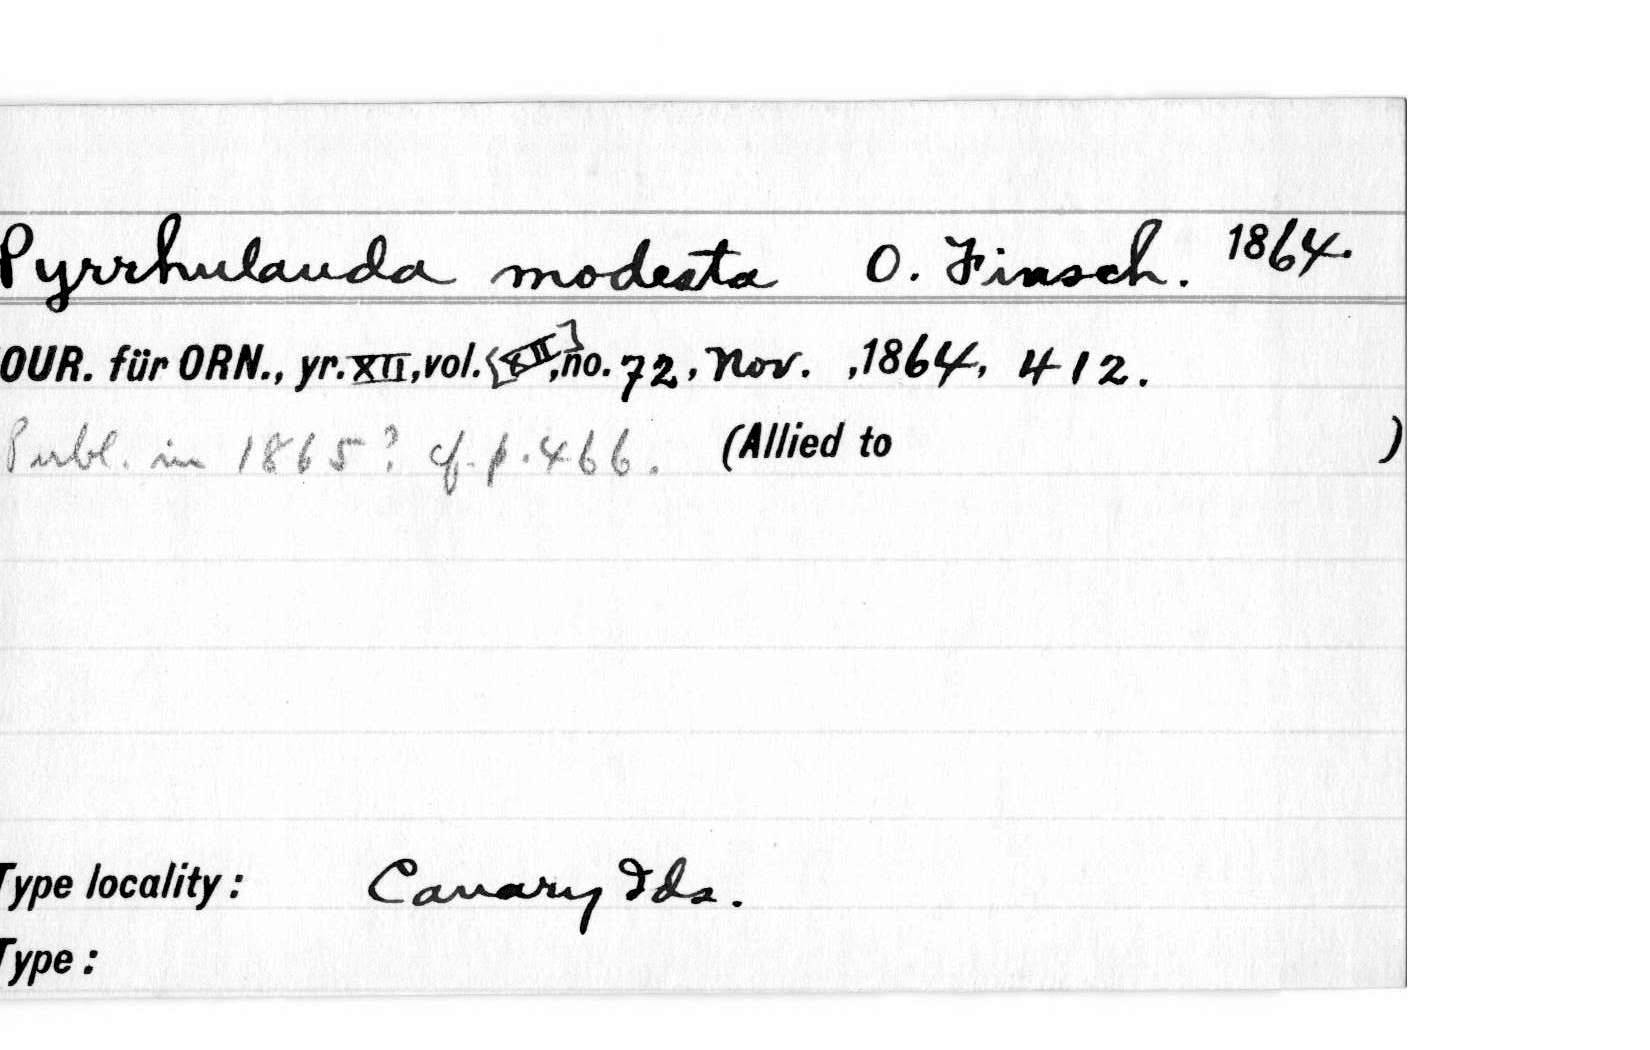 Pyrrhulauda modesta O. Finsch. 1864.
OUR. für ORN., yr. XII, vol. [XII], no. 72, Nov. , 1864, 412.
Publ. in 1865? cf. p. 466. (Allied to )
Type locality: Canary Ids.
Type: